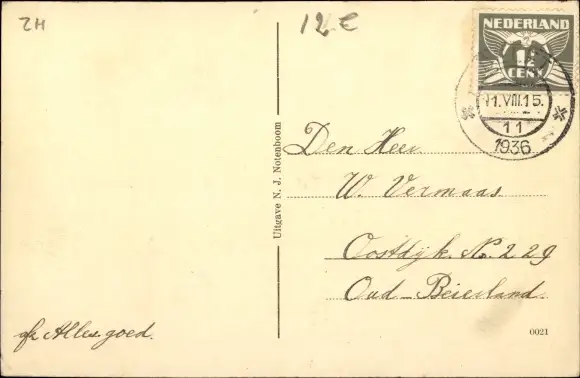 ZH
12 €
NEDERLAND
1½
CENT
11.VIII.15.
11
1936
Den Heer
W. Vermaas
Oostdijk No. 229
Oud-Beierland.
Alles goed.
Uitgave N. J. Notenboom
0021